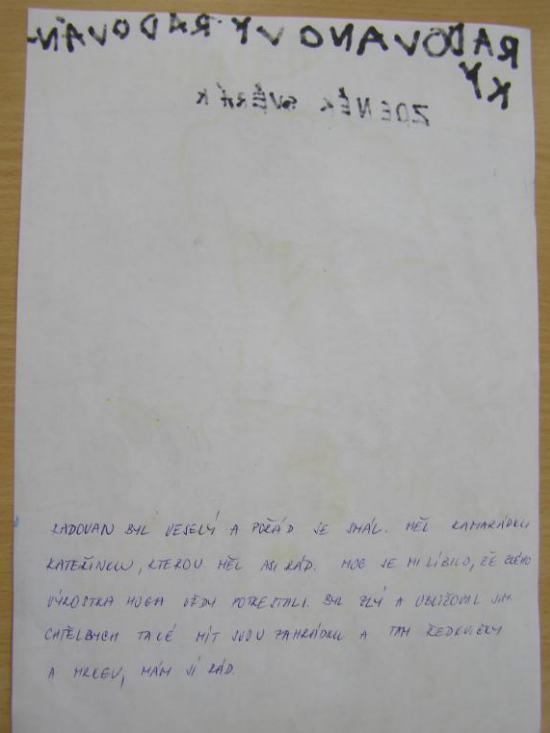 RADOVANOVY RADOVÁN-
KY
ZDENĚK SVĚRÁK
RADOVAN BYL VESELÝ A POŘÁD SE SMÁL. MĚL KAMARÁDKU
KATEŘINKU, KTEROU MĚL ASI RÁD. MOC SE MI LÍBILO, ŽE ZLÉHO
VÝROSTKA HUGA VŽDY POTRESTALI. BYL ZLÝ A UBLIŽOVAL JIM.
CHTĚLBYCH TAKÉ MÍT SVOU ZAHRÁDKU A TAM ŘEDKVIČKY
A MRKEV, MÁM JÍ RÁD.